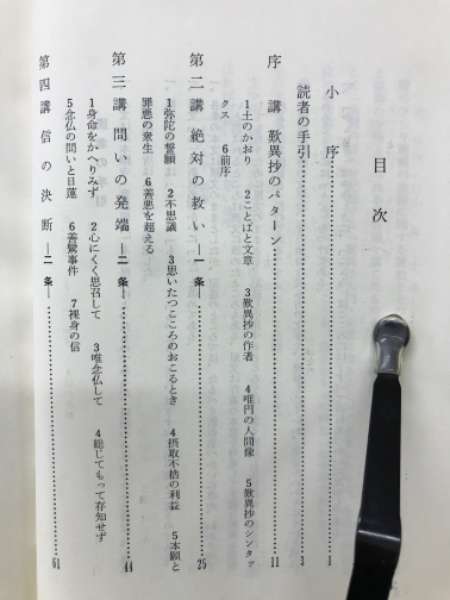 目次
小序……1
読者の手引……3
序講 歎異抄のパターン……11
1土のかおり 2ことばと文章 3歎異抄の作者 4唯円の人間像 5歎異抄のシンタッ
クス 6前序
第二講 絶対の救い―一条―……25
1弥陀の誓願 2不思議 3思いたつこころのおこるとき 4摂取不捨の利益 5本願と
罪悪の衆生 6善悪を超える
第三講 問いの発端―二条―……44
1身命をかへりみず 2心にくく思召して 3唯念仏して 4総じてもって存知せず
5念仏の問いと日蓮 6善鸞事件 7裸身の信
第四講 信の決断―二条―……61